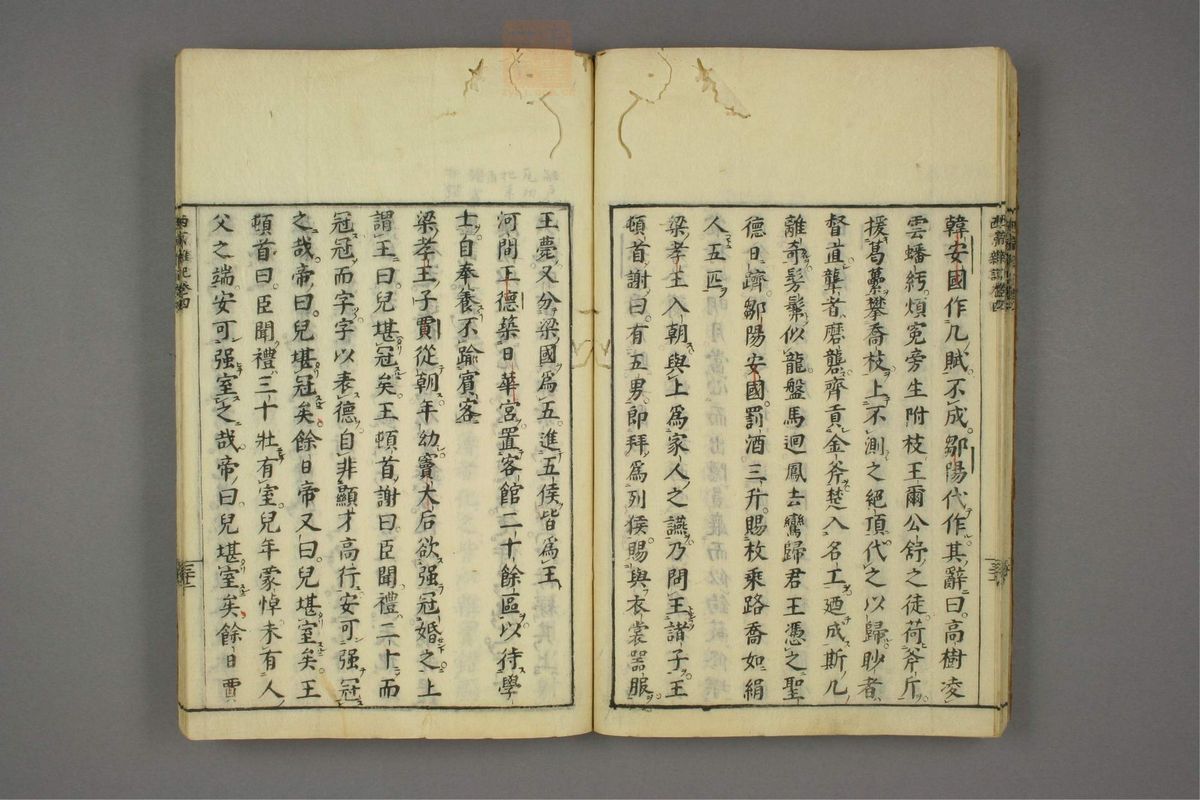 韓安國作几賦不成鄒陽代作其辭曰高樹凌
雲蟠紆煩寃旁生附枝王爾公舒之徒荷斧斤
援葛虆攀喬枝上不測之絕頂代之以歸眇者
督直聾者磨礲齊貢金斧楚入名工迺成斯几
離奇髣髴似龍盤馬迴鳳去鸞歸君王憑之聖
德日躋鄒陽安國罰酒三升賜枚乘路喬如絹
人五匹
梁孝王入朝與上爲家人之讌乃問王諸子王
頓首謝曰有五男即拜爲列侯賜與衣裳器服
王薨又分梁國爲五進五侯皆爲王
河間王德築日華宮置客館二十餘區以待學
士自奉養不踰賓客
梁孝王子賈從朝年幼竇太后欲强冠婚之上
謂王曰兒堪冠矣王頓首謝曰臣聞禮二十而
冠冠而字字以表德自非顯才高行安可强冠
之哉帝曰兒堪冠矣餘日帝又曰兒堪室矣王
頓首曰臣聞禮三十壯有室兒年蒙悼未有人
父之端安可强室之哉帝曰兒堪室矣餘日賈